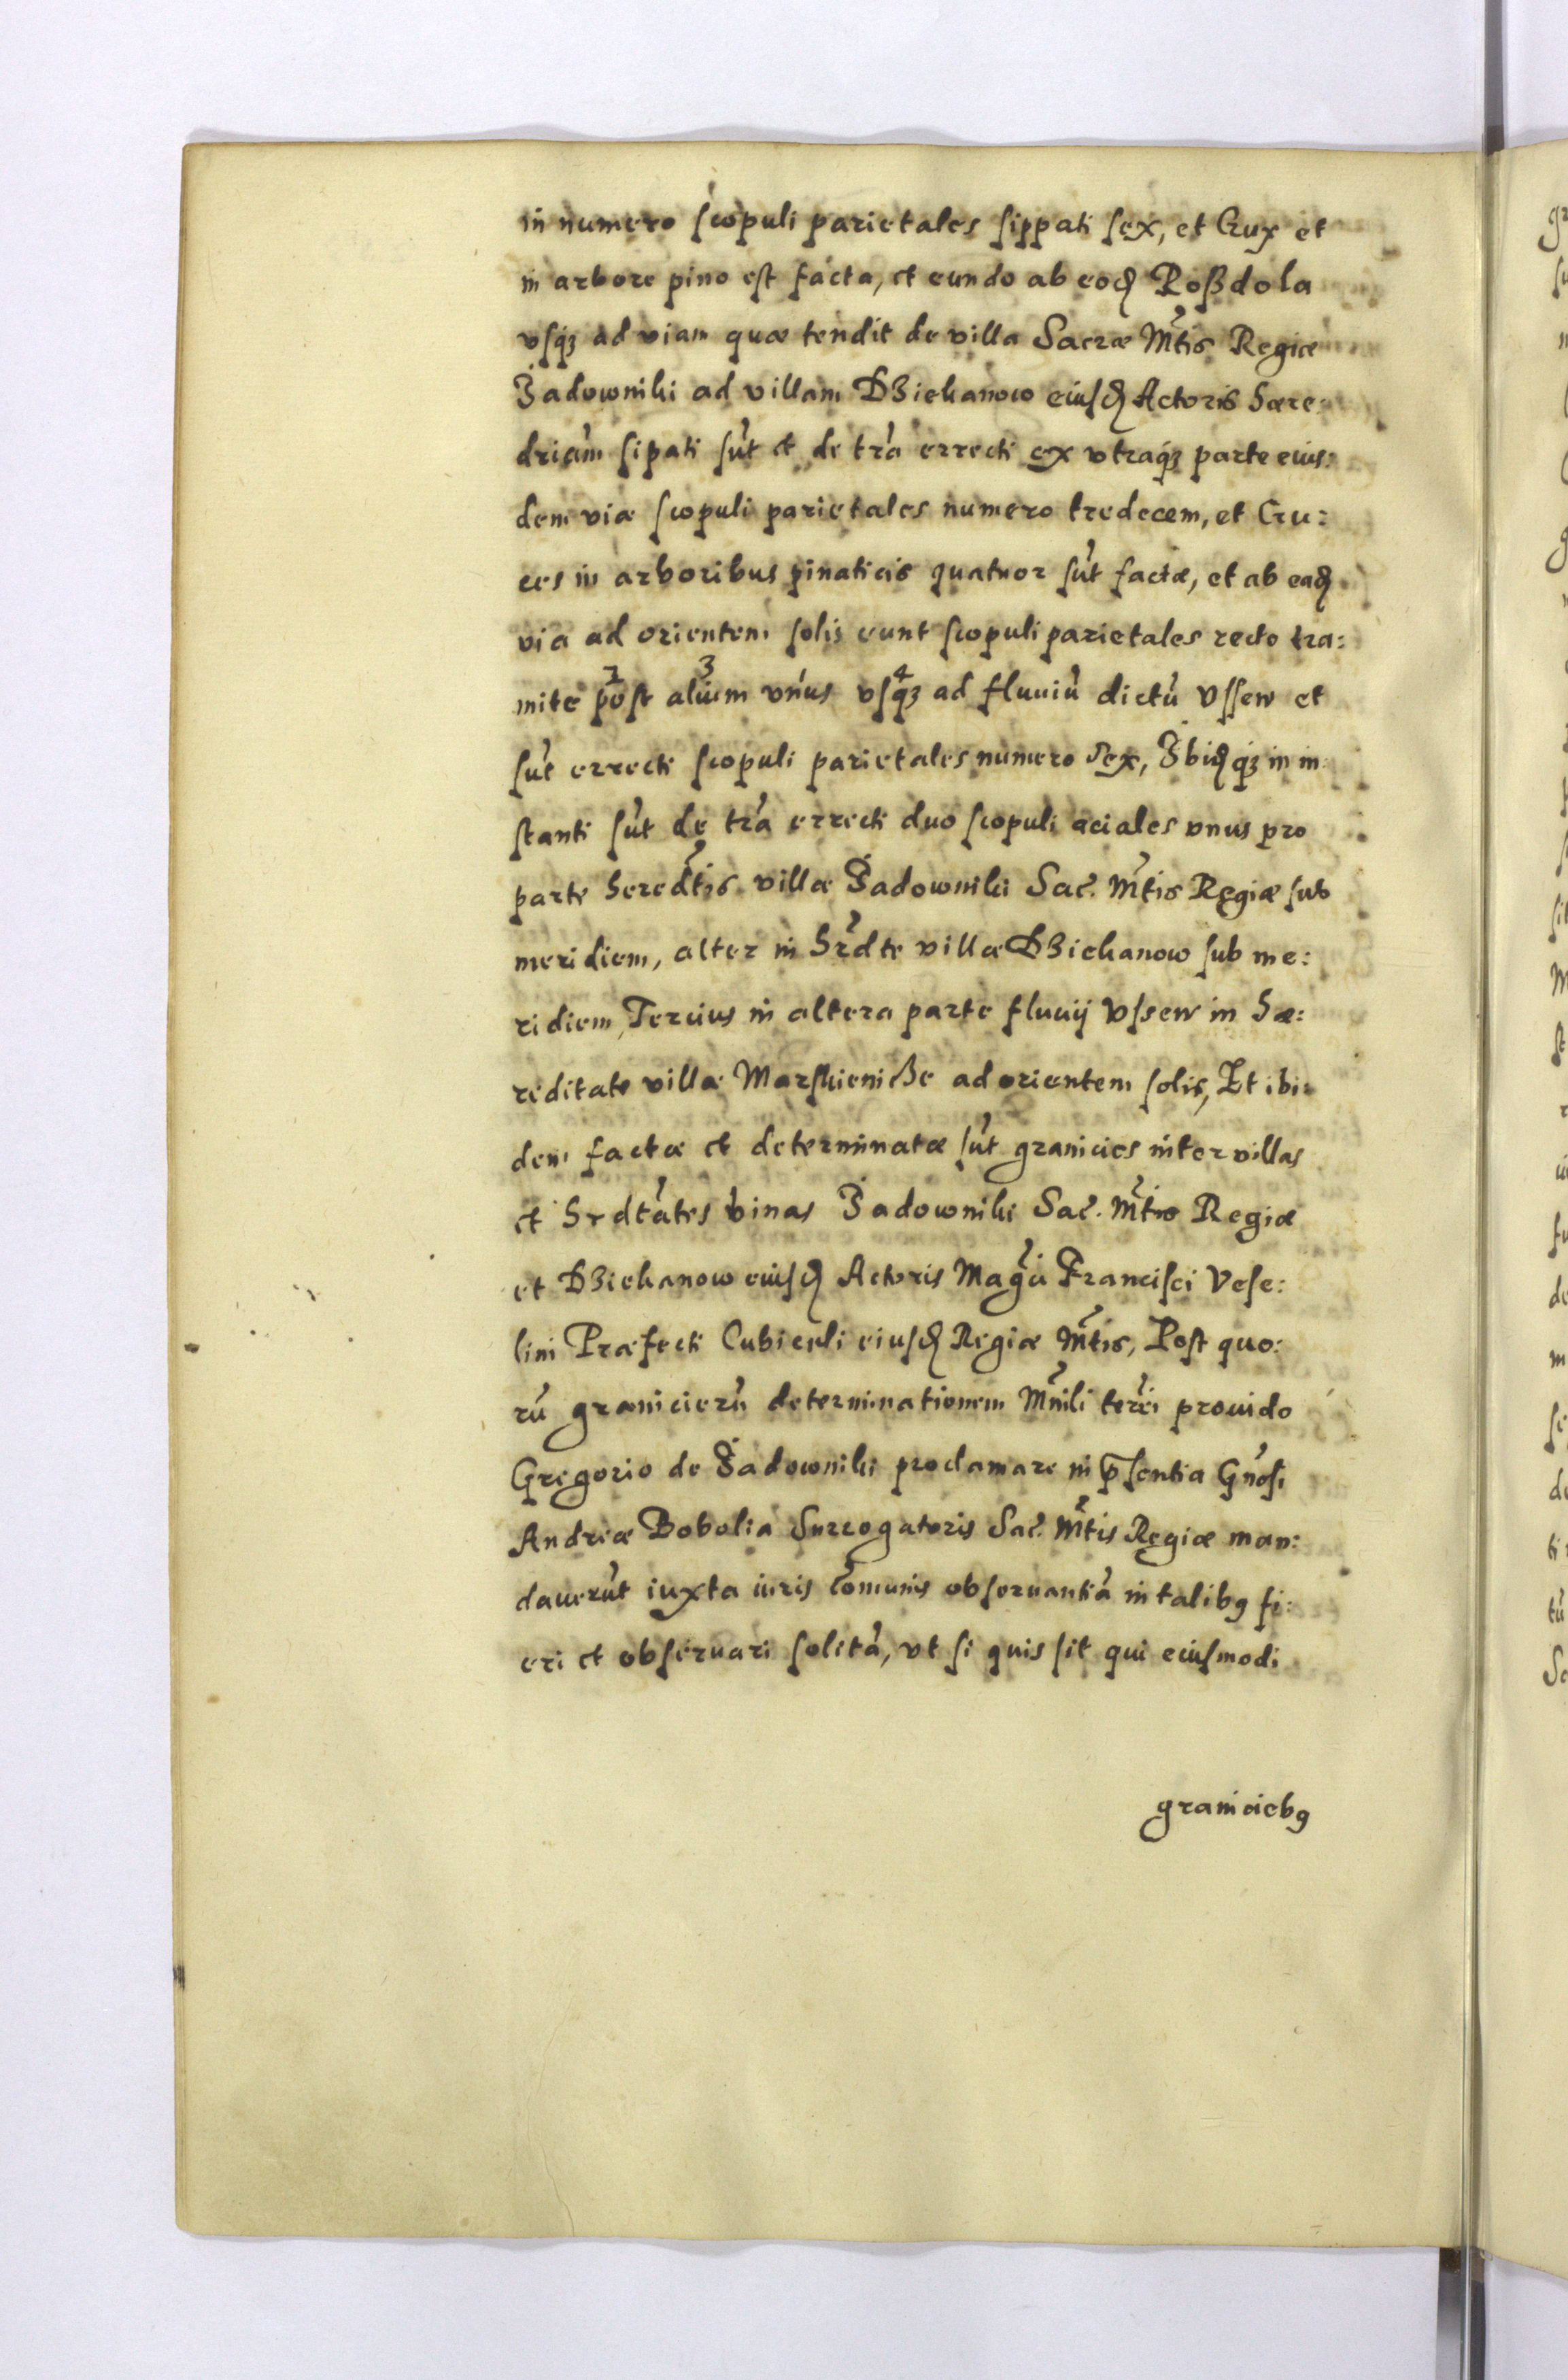 in numero scopuli parietales sippati sex, et Crux et
in arbore pino est facta, et eundo ab eod Roßdola
vsq3 ad viam quæ tendit de villa Sacræ Mtis Regiæ
Zadowniki ad villam Dziekanow eiusd Actoris hære
driam sipati sut et de tra errecti ex vtraq3 parte eius:
dem viæ scopuli parietales numero tredecem, et Cru:
ces in arboribus pinaticis quatuor sut factæ, et ab ead
via ad orientem solis eunt scopuli parietales recto tra:
mite post alium vnus vsq3 ad fluuiu dictu Vssew et
sut errecti scopuli parietales numero sex, Ibidq3 in in
stanti sut de tra errecti duo scopuli aciales vnus pro
parte heredtis villæ Zadowniki Sac. Mtis Regiæ sub
meridiem, alter in hrdte villæ Dziekanow sub me:
ridiem, Tercius in altera parte fluuij Vssew in hæ:
reditate villæ Marskienicze ad orientem solis, Et ibi:
dem factæ et determinatæ sut granicies inter villas
et hrdtates binas Zadowniki Sac. Mtis Regiæ
et Dziekanow eiusd Actoris Magci Francisci Vese:
lini Præfecti Cubiculi eiusd Regiæ Mtis, Post quo:
ru granicieru determinationem Mnili terei prouido
Gregorio de Zadowniki proclamare in psentia Gnosi
Andreæ Bobolia Surrogatoris Sac. Mtis Regiæ man:
dauerut iuxta iuris comunis obseruantia in talib9 fi:
eri et obseruari solita, vt si quis sit qui eiusmodi
granicieb9